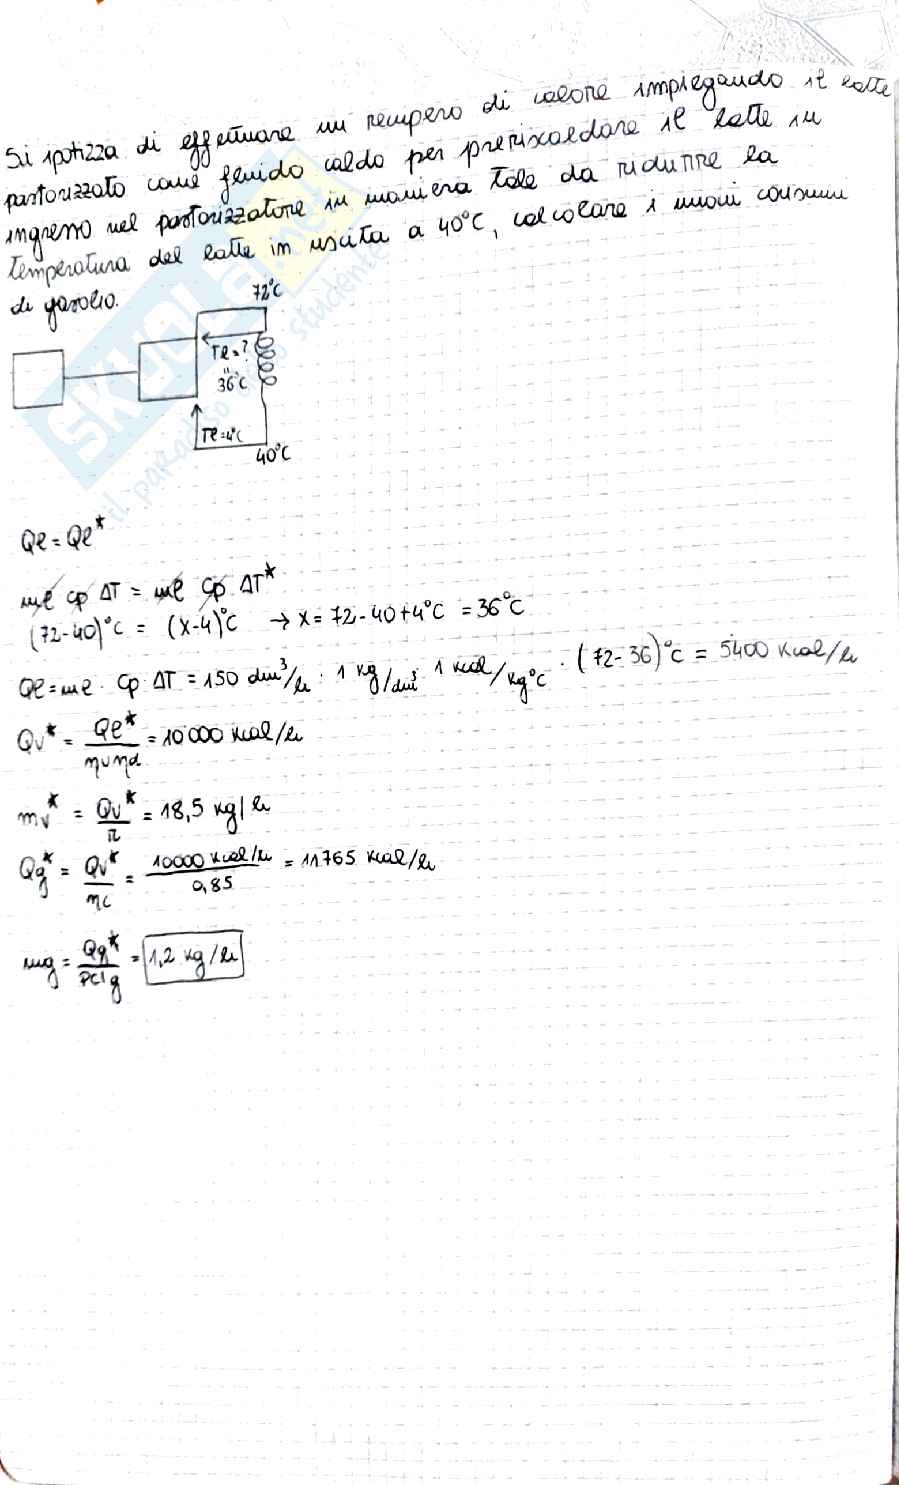 Si ipotizza di effettuare un recupero di calore impiegando il latte
pastorizzato come fluido caldo per preriscaldare il latte in
ingresso nel pastorizzatore in maniera tale da ridurre la
temperatura del latte in uscita a 40°C, calcolare i nuovi consumi
di gasolio.
72°C
Tl = ?
=
36°C
Tl = 4°C
40°C
SKUOLA.net
il paradiso dello studente
Ql = Ql*
ml cp ΔT = ml cp ΔT*
(72-40)°C = (x-4)°C → x = 72-40+4°C = 36°C
Ql = ml · cp ΔT = 150 dm³/h · 1 kg/dm³ 1 kcal/kg°C · (72-36)°C = 5400 kcal/h
Qv* = Ql*/ηvηd = 10000 kcal/h
mv* = Qv*/r = 18,5 kg/h
Qg* = Qv*/ηc = 10000 kcal/h / 0,85 = 11765 kcal/h
mg = Qg*/PCIg = 1,2 kg/h